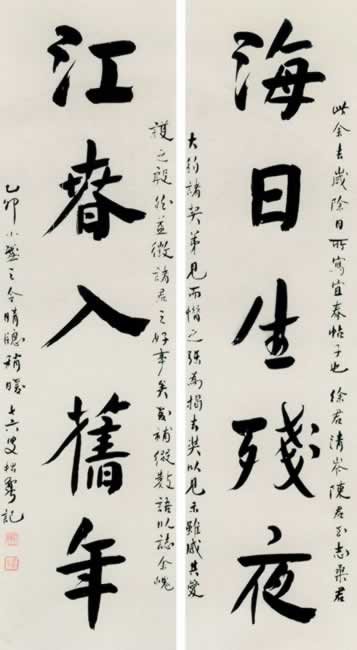 此余去歲除日所寫宜春帖子也 徐君清岑陳君 志 君
海日生殘夜
大 諸契弟見而惜之 為揭去 以見示雖感其愛
護之殷 益徵諸君之好事矣 補綴數語以誌余愧
江春入舊年
乙卯小 之 晴牕 七六叟松 記